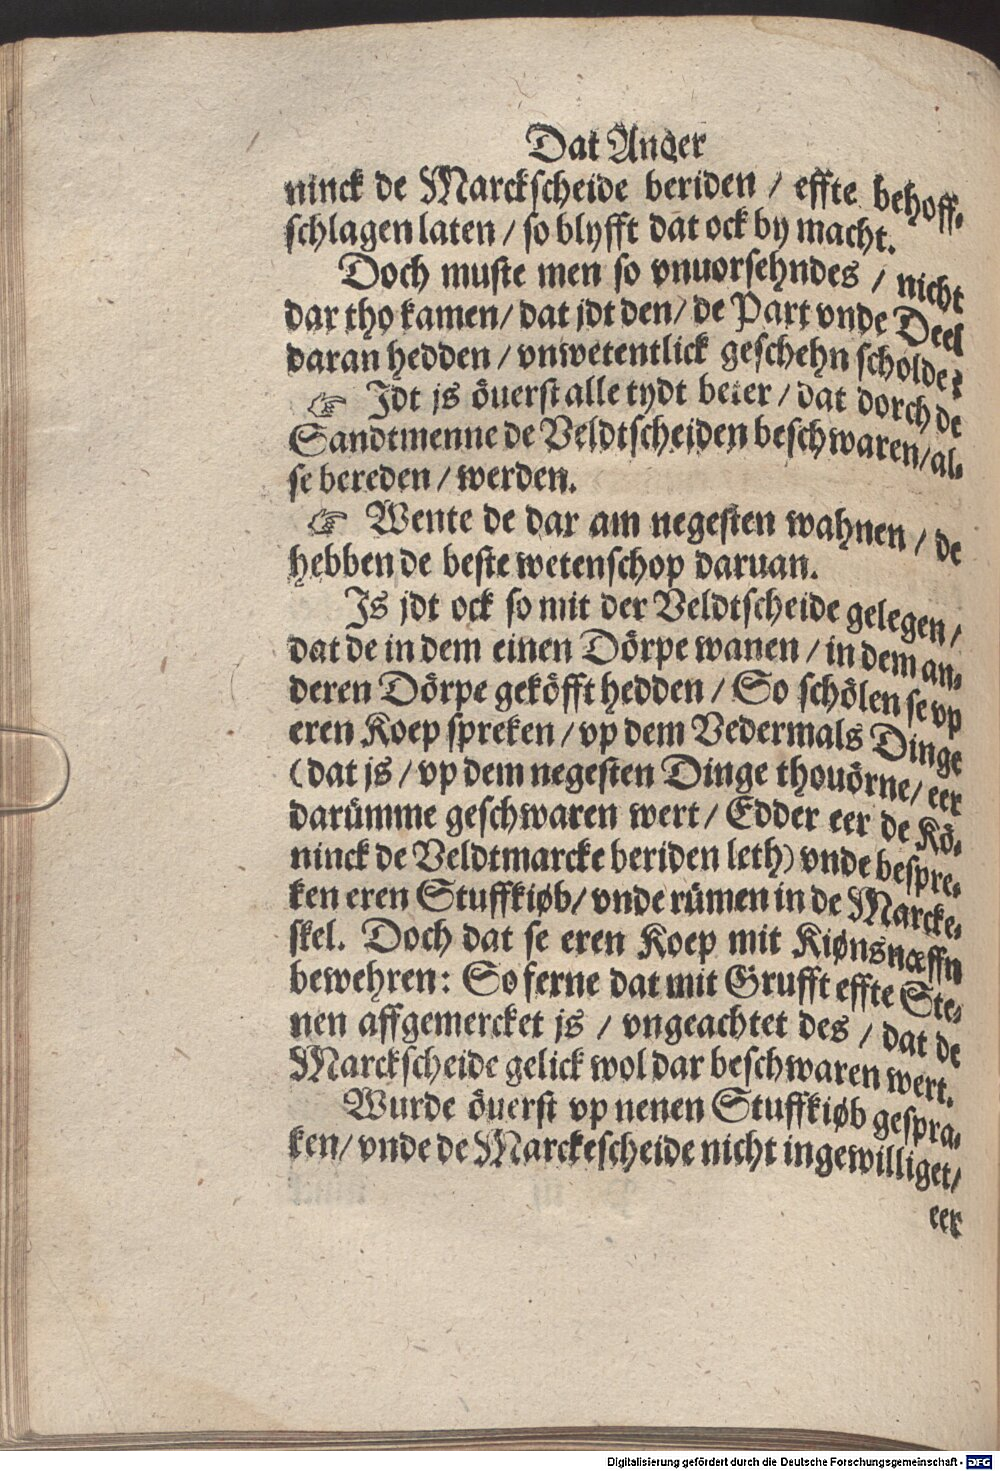 Dat Ander
ninck de Marckscheide beriden / effte behoff-
schlagen laten / so blyfft dat ock by macht.
Doch muste men so vnuorsehndes / nicht
dar tho kamen / dat jdt den / de Part vnde Deel
daran hedden / vnwetentlick geschehn scholde:
☞ Jdt js öuerst alle tydt beter / dat dorch de
Sandtmenne de Veldtscheiden beschwaren / al-
se bereden / werden.
☞ Wente de dar am negesten wahnen / de
hebben de beste wetenschop daruan.
Js jdt ock so mit der Veldtscheide gelegen /
dat de in dem einen Dörpe wanen / in dem an-
deren Dörpe geköfft hedden / So schölen se vp
eren Koep spreken / vp dem Vedermals Dinge
(dat js / vp dem negesten Dinge thouörne / eer
darümme geschwaren wert / Edder eer de Kö-
ninck de Veldtmarcke beriden leth) vnde bespre-
ken eren Stuffkiøb / vnde rümen in de Marcke-
skel. Doch dat se eren Koep mit Kiønsnæffn
bewehren: So ferne dat mit Grufft effte Ste-
nen affgemercket js / vngeachtet des / dat de
Marckscheide gelick wol dar beschwaren wert.
Wurde öuerst vp nenen Stuffkiøb gespra-
ken / vnde de Marckescheide nicht ingewilliget /
eer
Digitalisierung gefördert durch die Deutsche Forschungsgemeinschaft - DFG